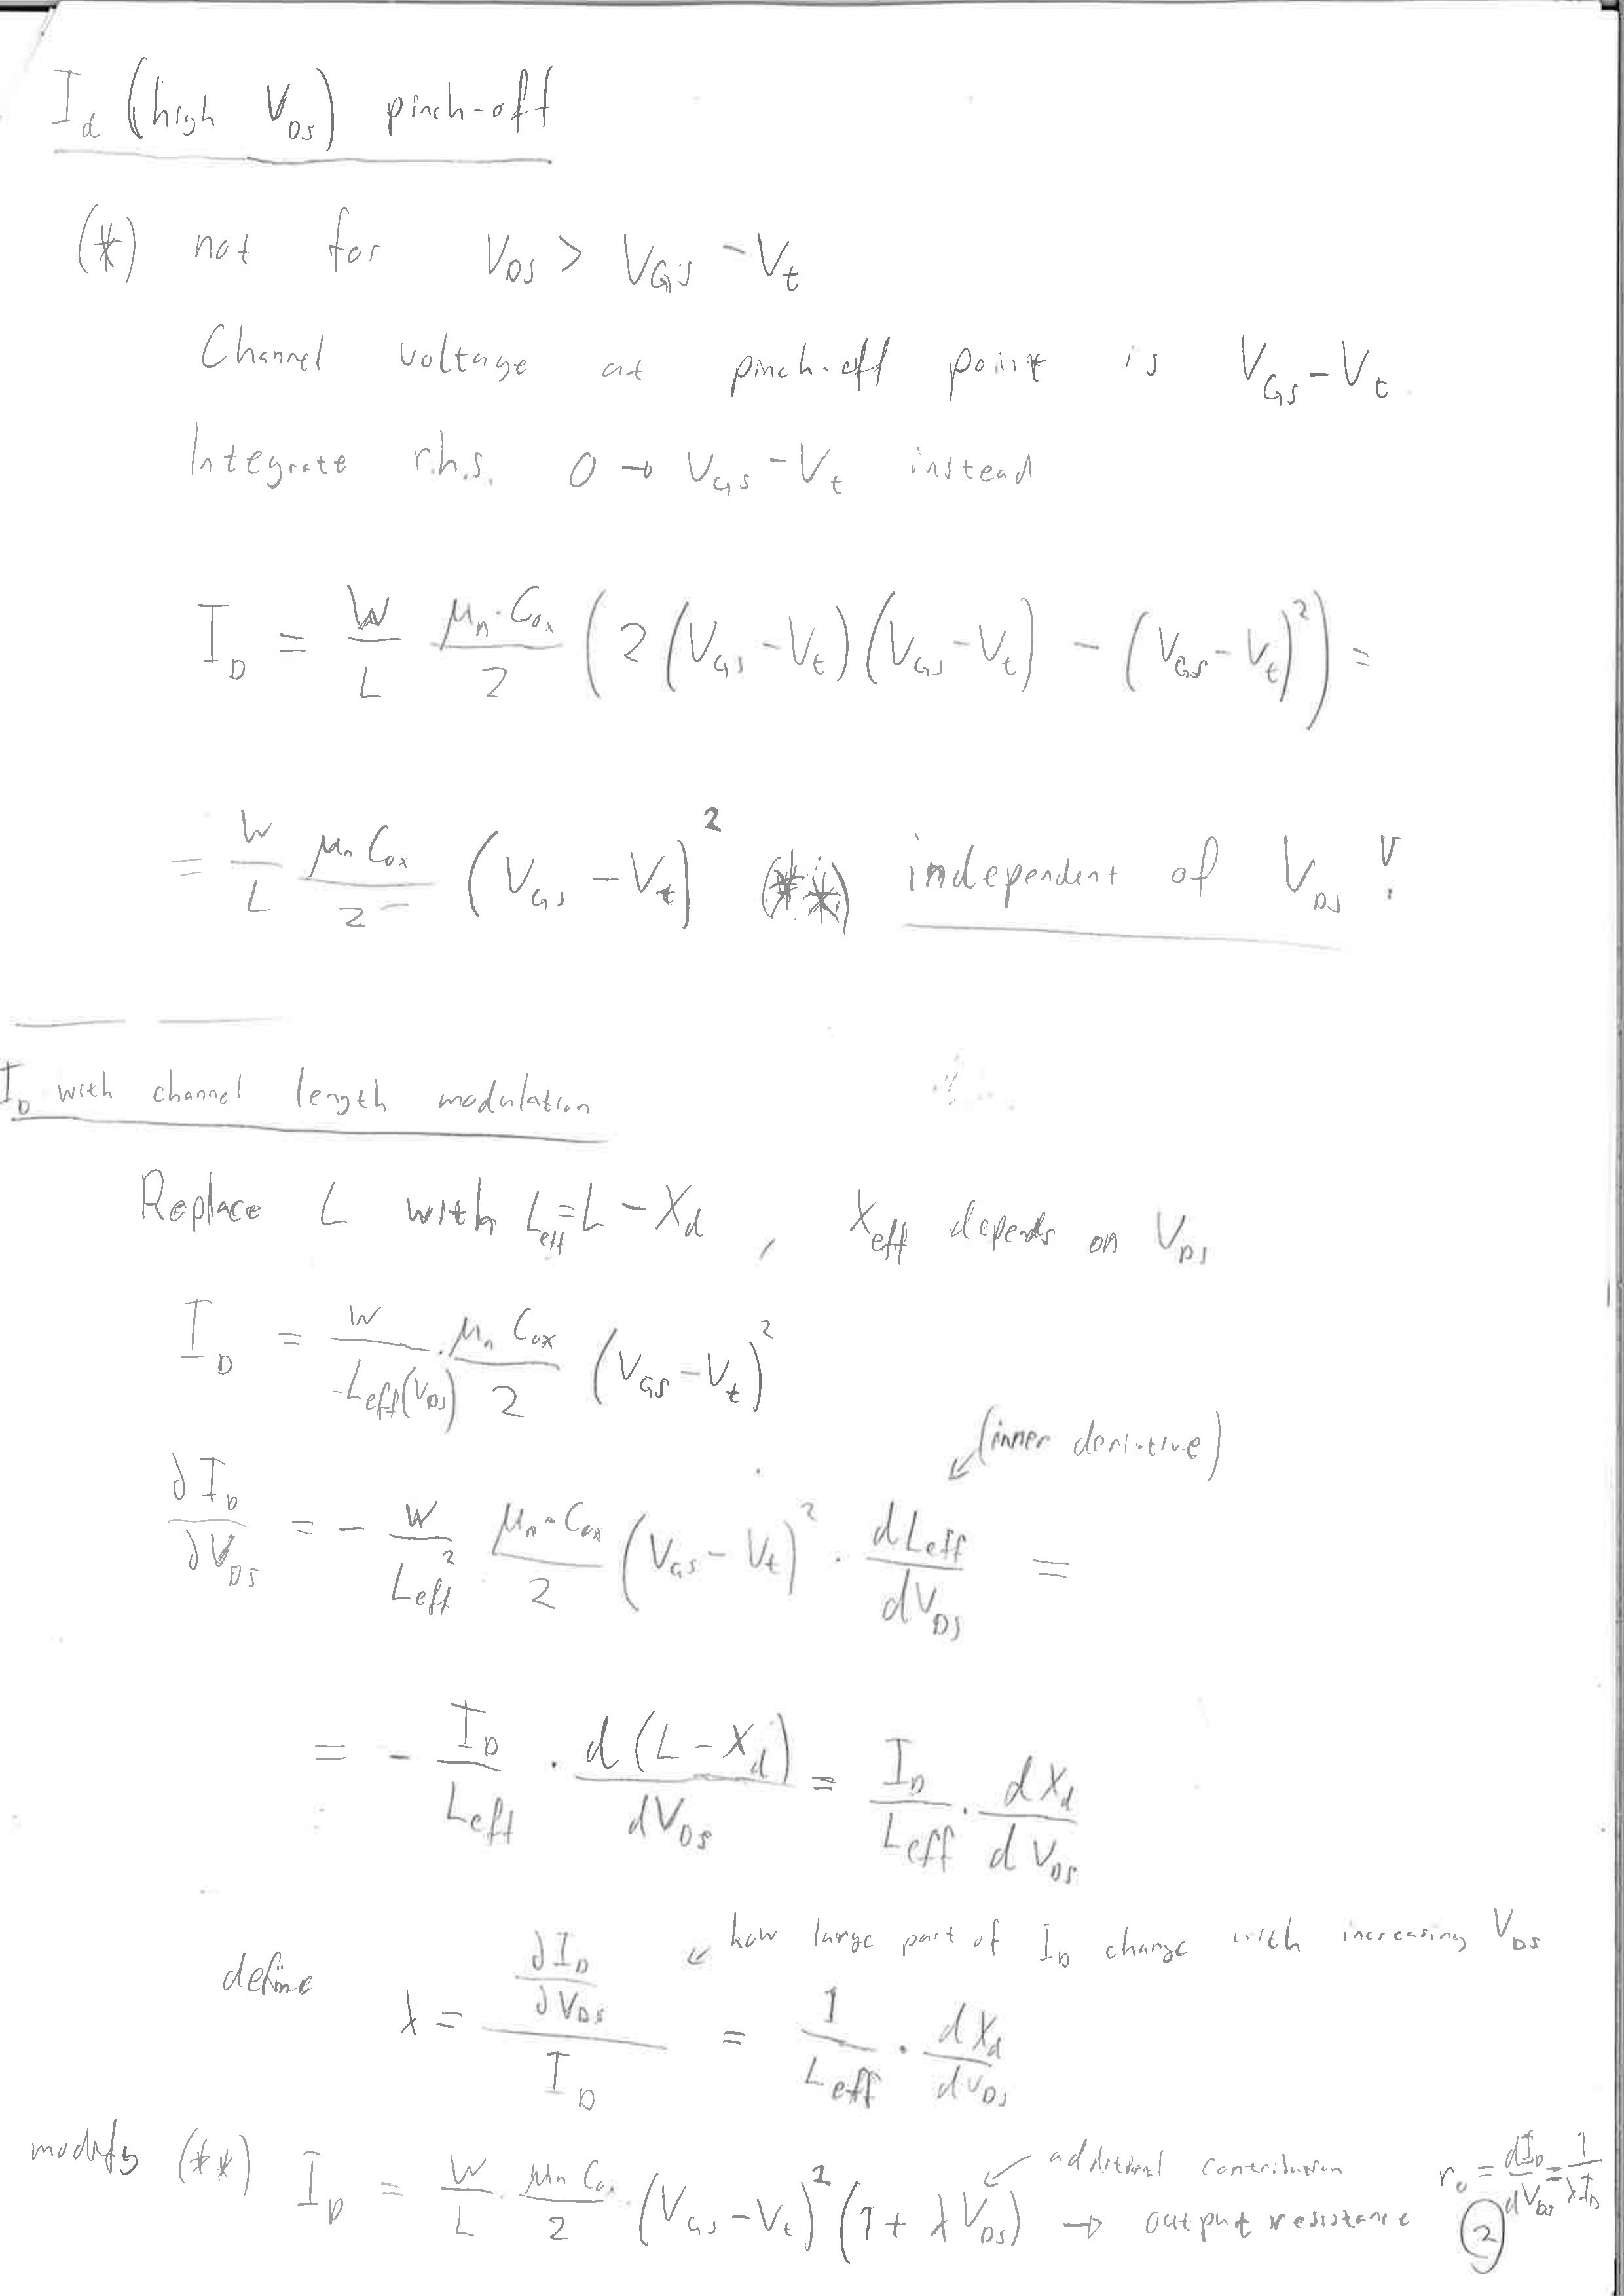 I_d (high V_DS) pinch-off
(*) not for V_DS > V_GS - V_t
Channel voltage at pinch-off point is V_GS - V_t
Integrate r.h.s. 0 → V_GS - V_t instead
I_D = W/L μ_n·C_ox/2 (2(V_GS - V_t)(V_GS - V_t) - (V_GS - V_t)^2) =
= W/L μ_n C_ox/2 (V_GS - V_t)^2 (**) independent of V_DS !
I_D with channel length modulation
Replace L with L_eff = L - X_d , X_eff depends on V_DS
I_D = W/L_eff(V_DS) · μ_n C_ox/2 (V_GS - V_t)^2
(inner derivative)
∂I_D/∂V_DS = - W/L_eff^2 μ_n·C_ox/2 (V_GS - V_t)^2 · dL_eff/dV_DS =
= - I_D/L_eff · d(L - X_d)/dV_DS = I_D/L_eff · dX_d/dV_DS
how large part of I_D change with increasing V_DS
define λ = (∂I_D/∂V_DS)/I_D = 1/L_eff · dX_d/dV_DS
additional contribution
modify (**) I_D = W/L · μ_n C_o/2 · (V_GS - V_t)^2 (1 + λ V_DS) → output resistance r_o = dI_D/dV_DS = 1/λI_D
2